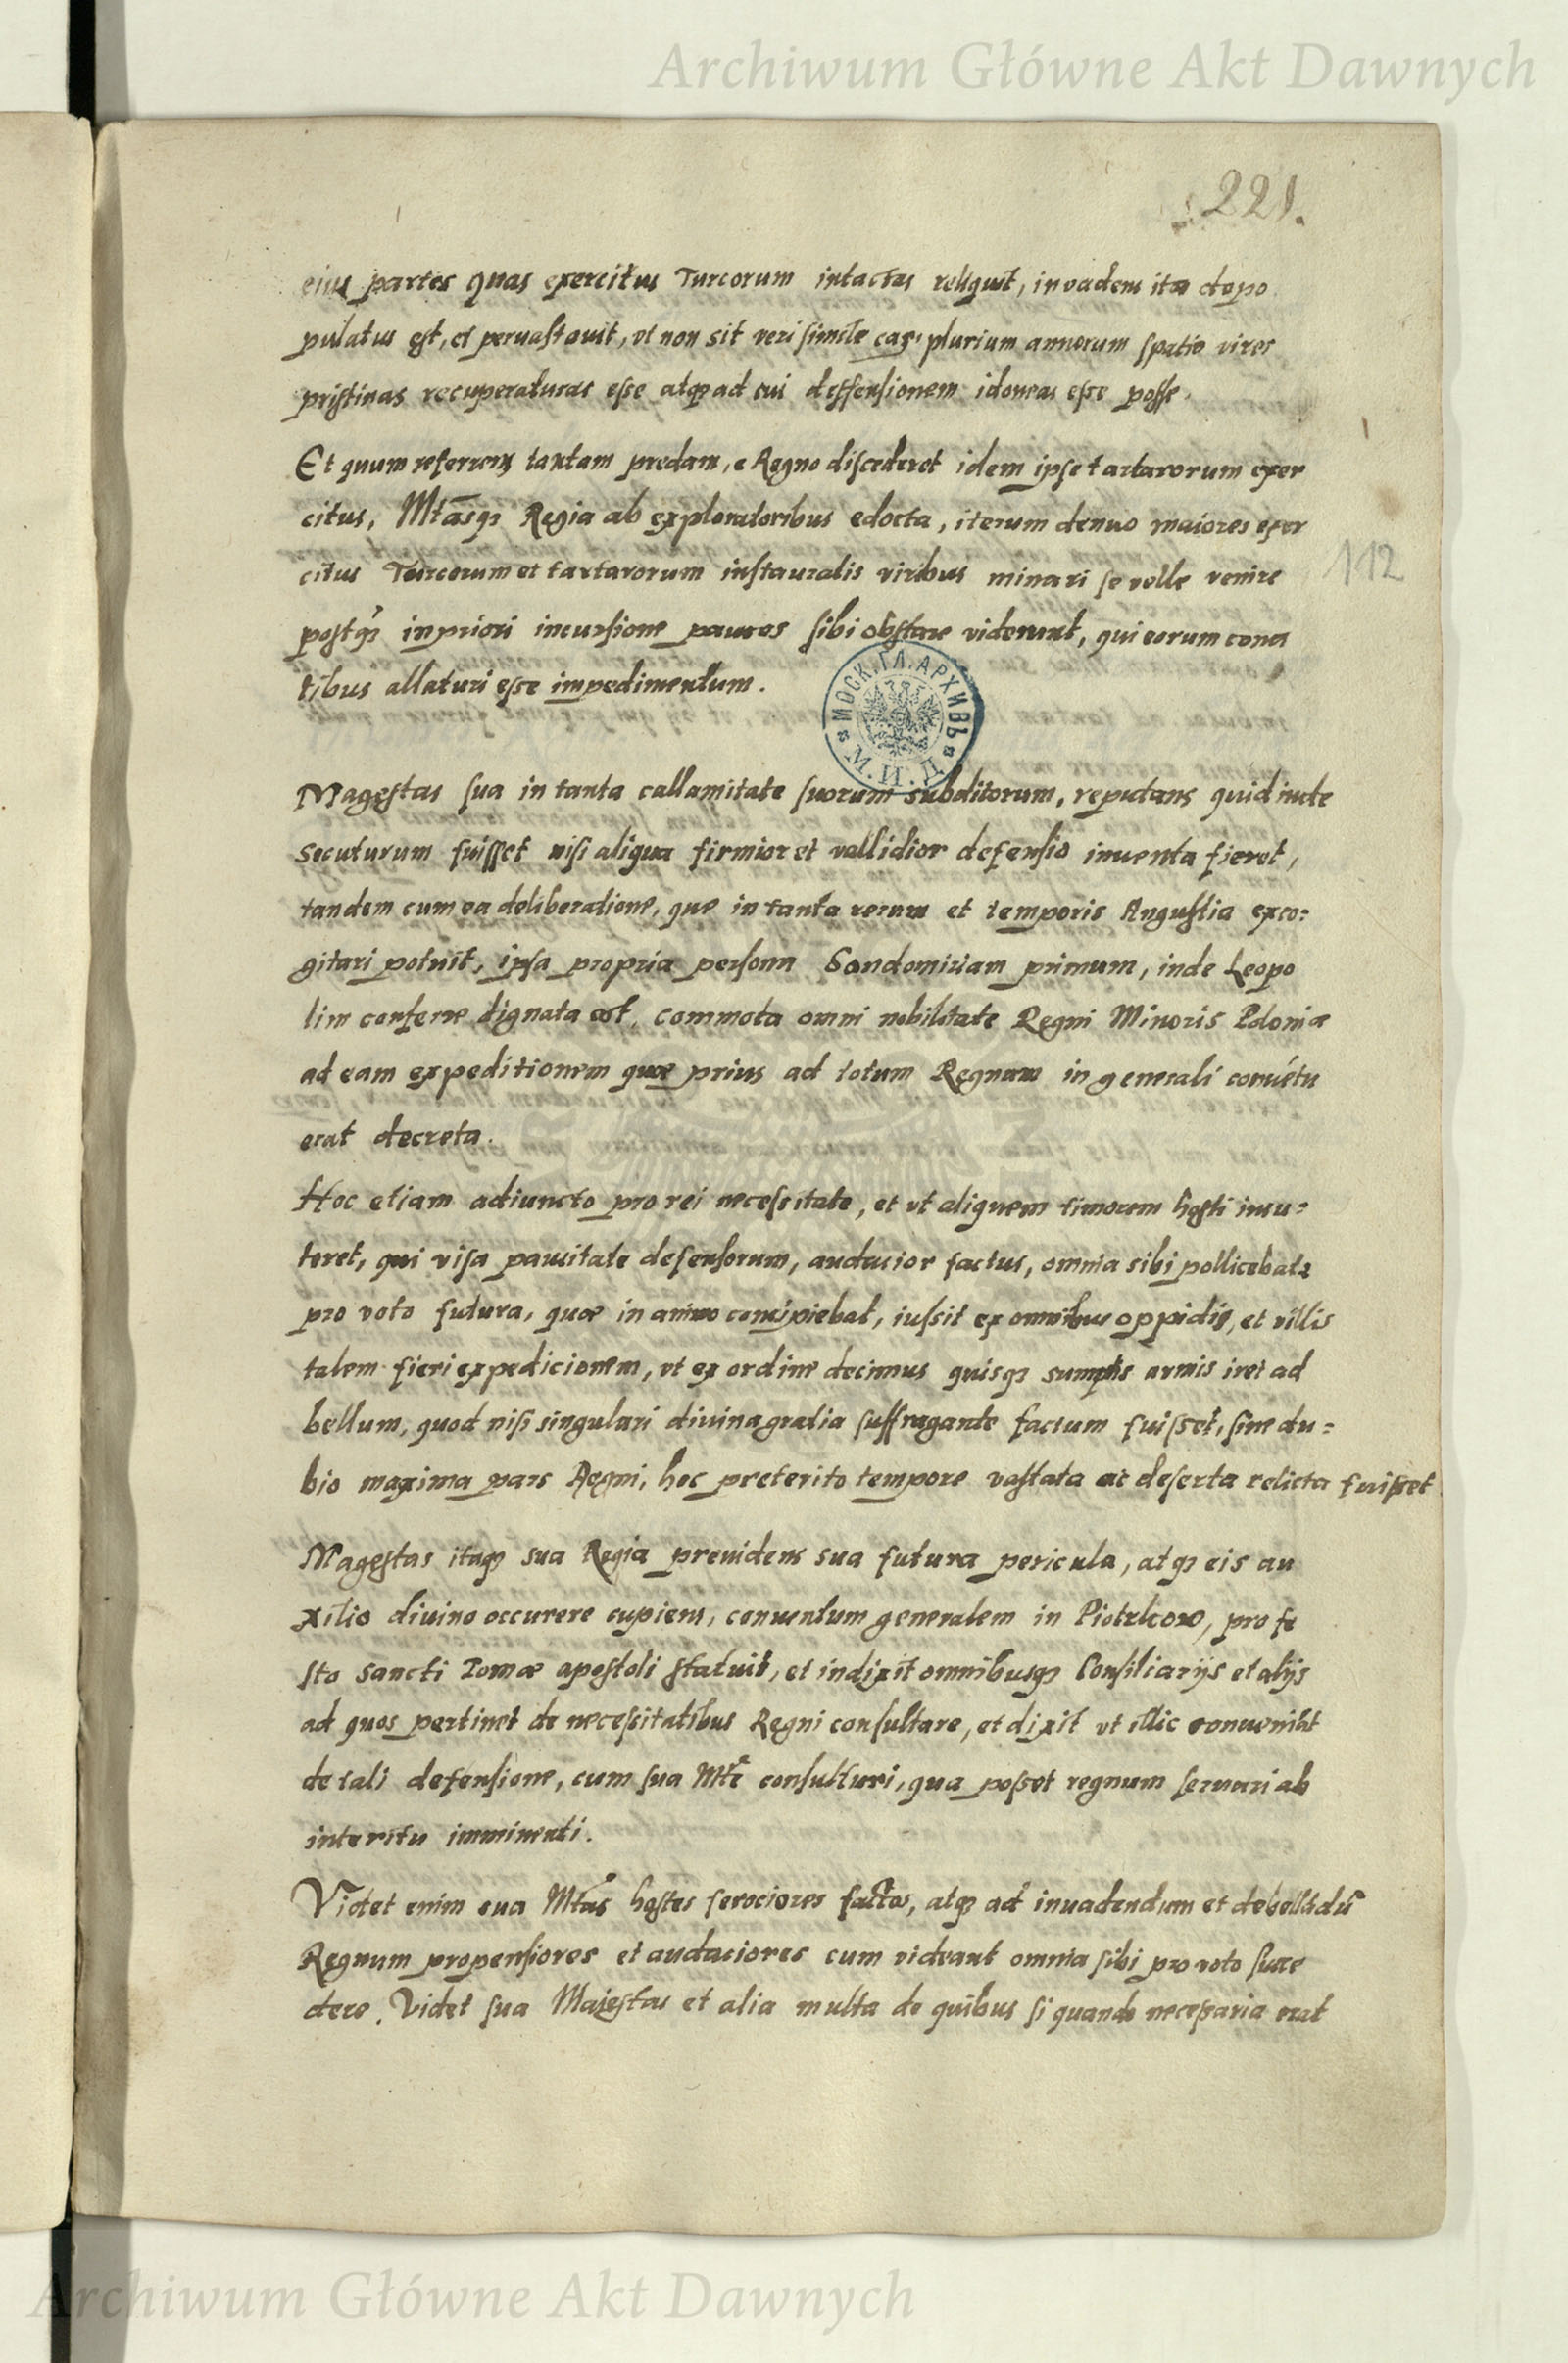 Archiwum Główne Akt Dawnych
221.
eius partes quas exercitus Turcorum intactas reliquit, invadens ita depo
pulatus est, et pervastavit, vt non sit verisimile eas, plurium annorum spatio vires
pristinas recuperaturas esse atq3 ad sui deffensionem idoneas esse posse.
Et quum referrens tantam predam, e Regno discederet idem ipse tartarorum exer
citus, Mtasq3 Regia ab exploratoribus edocta, iterum denuo maiores exer
citus Turcorum et tartarorum instauratis viribus minari se velle venire
112
postq3 in priori incursione paucos sibi obstare viderunt, qui eorum cona
tibus allaturi esse impedimentum.
МОСК. ГЛ. АРХИВЪ М. И. Д.
Magestas sua in tanta callamitate suorum subditorum, reputans quid inde
secuturum fuisset nisi aliqua firmior et vallidior defensio inventa fieret,
tandem cum ea deliberatione, que in tanta rerum et temporis Angustia exco:
gitari potuit, ipsa propria persona Sandomiriam primum, inde Leopo
lim conferre dignata est, commota omni nobilitate Regni Minoris Poloniæ
ad eam expeditionem quæ prius ad totum Regnum in generali convétu
erat decreta.
Hoc etiam adiuncto pro rei necessitate, et vt aliquem timorem hosti incu:
teret, qui visa paucitate defensorum, audacior factus, omnia sibi pollicebatr
pro voto futura, quæ in animo concipiebat, iussit ex omnibus oppidis, et villis
talem fieri expedicionem, vt ex ordine decimus quisq3 sumptis armis iret ad
bellum, quod nisi singulari divina gratia suffragante factum fuisset, sine du:
bio maxima pars Regni, hoc preterito tempore vastata ac deserta relicta fuisset
Magestas itaq3 sua Regia previdens sua futura pericula, atq3 eis au
xilio divino occurere cupiens, conventum generalem in Piotrkow, pro fe
sto sancti Tomæ apostoli statuit, et indixit omnibusq3 Consiliarijs et alijs
ad quos pertinet de necessitatibus Regni consultare, et dixit vt illic conveniãt
de tali defensione, cum sua Mte consulturi, qua posset regnum servari ab
interitu imminenti.
Videt enim sua Mtas hostes ferociores factos, atq3 ad invadendum et debellãdũ
Regnum propensiores et audaciores cum videant omnia sibi pro voto succe
dere. Videt sua Maiestas et alia multa de quibus si quando necessaria erat
Archiwum Główne Akt Dawnych